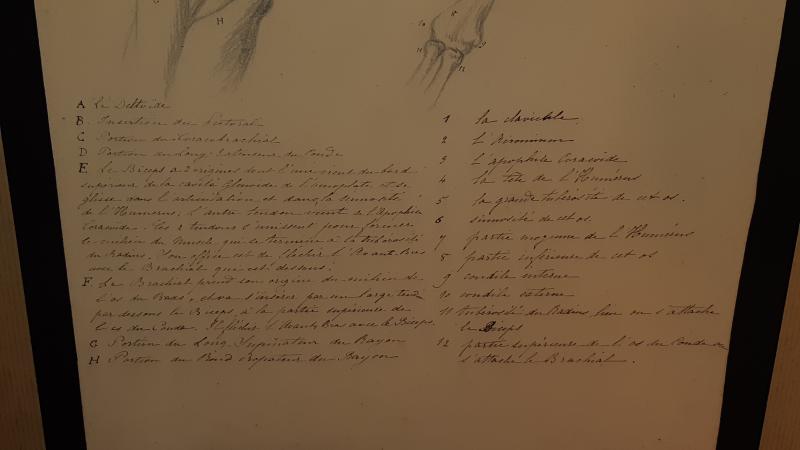 G
H
8
10
9
11
12
A Le Deltoïde
B Insertion du Pectoral
C Portion du Coracobrachial
D Portion du Long Extenseur du Coude
E Le Biceps a 2 origines dont l'une vient du bord
superieur de la cavité Glenoïde de l'omoplate et se
glisse dans l'articulation et dans la sinuosité
de l'Humerus; l'autre tendon vient de l'Apophise
Coracoïde. Ces 2 tendons s'unissent pour former
le milieu du Muscle qui se termine à la tubérosité
du Radius. Son office est de fléchir l'Avant-Bras
avec le Brachial qui est dessous.
F Le Brachial prend son origine du milieu de
l'os du Bras, et va s'insérer par un large tendon
par dessous le Biceps, à la partie supérieure de
l'os du Coude. Il fléchit l'Avant Bras avec le Biceps.
G Portion du Long Supinateur du Rayon
H Portion du Rond Pronateur du Rayon
1 la clavicule
2 L'Acromium
3 L'apophise Coracoïde
4 La tête de l'Humérus
5 la grande tubérosité de cet os.
6 sinuosité de cet os.
7 partie moyenne de l'Humérus
8 partie inférieure de cet os
9 condile interne
10 condile externe
11 tubérosité du Radius lieu ou s'attache
le Biceps
12 partie supérieure de l'os du Coude ou
s'attache le Brachial.